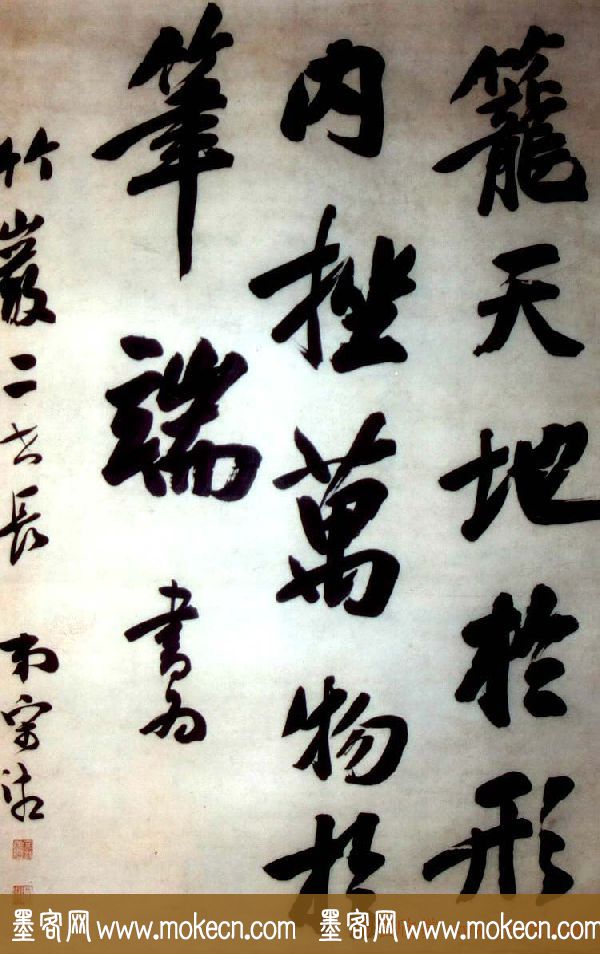 籠天地於形
内挫萬物於
筆端 書為
竹巖二長 宋湘
墨客网 www.mokecn.com 墨客网 www.mokecn.com